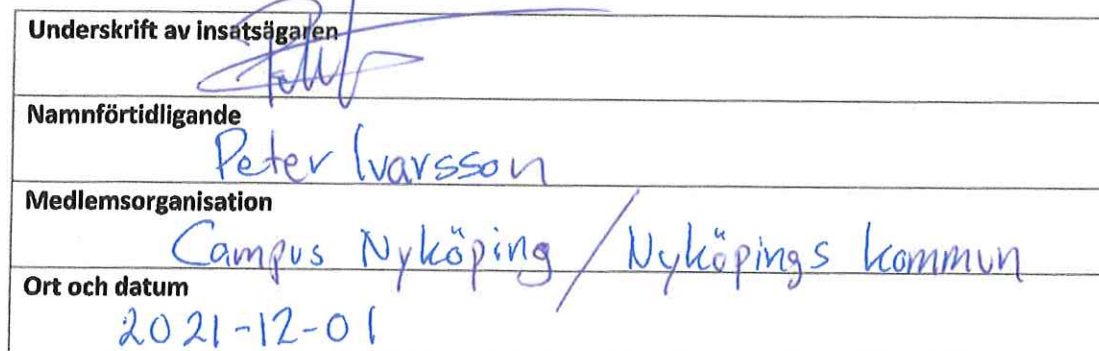 Underskrift av insatsägaren
Namnförtidligande
Peter Ivarsson
Medlemsorganisation
Campus Nyköping / Nyköpings kommun
Ort och datum
2021-12-01